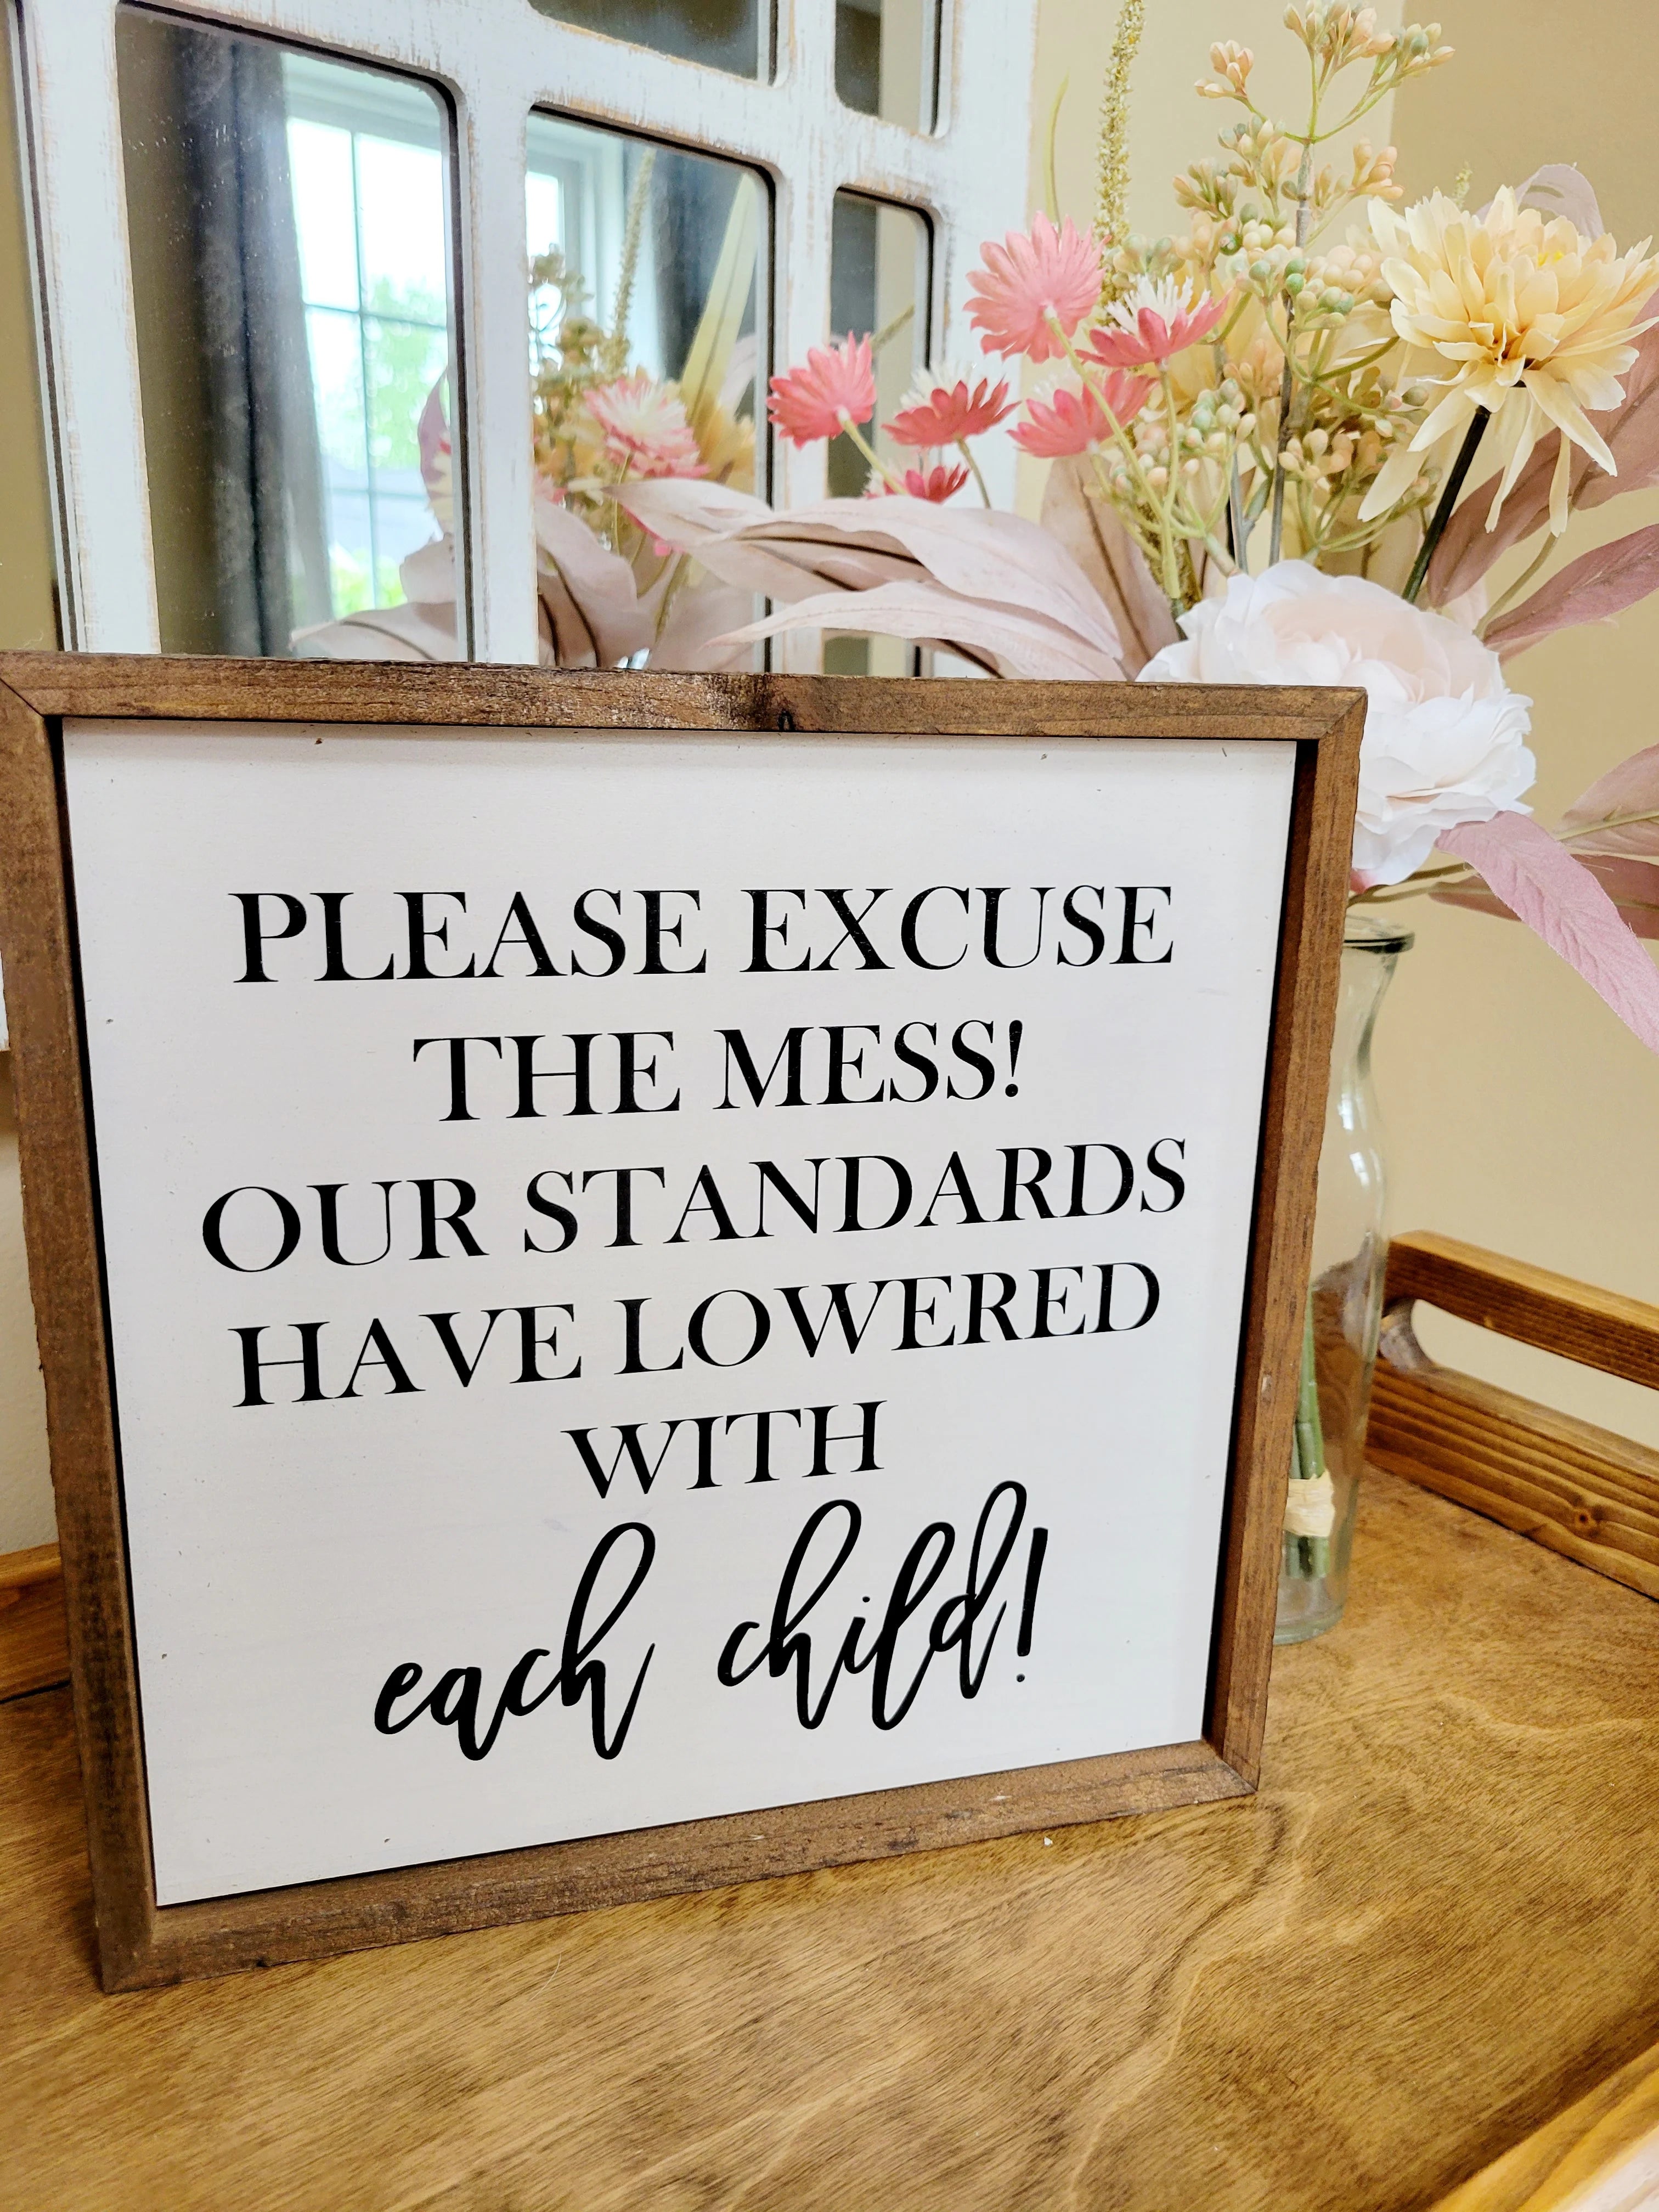 PLEASE EXCUSE
THE MESS!
OUR STANDARDS
HAVE LOWERED
WITH
each child!